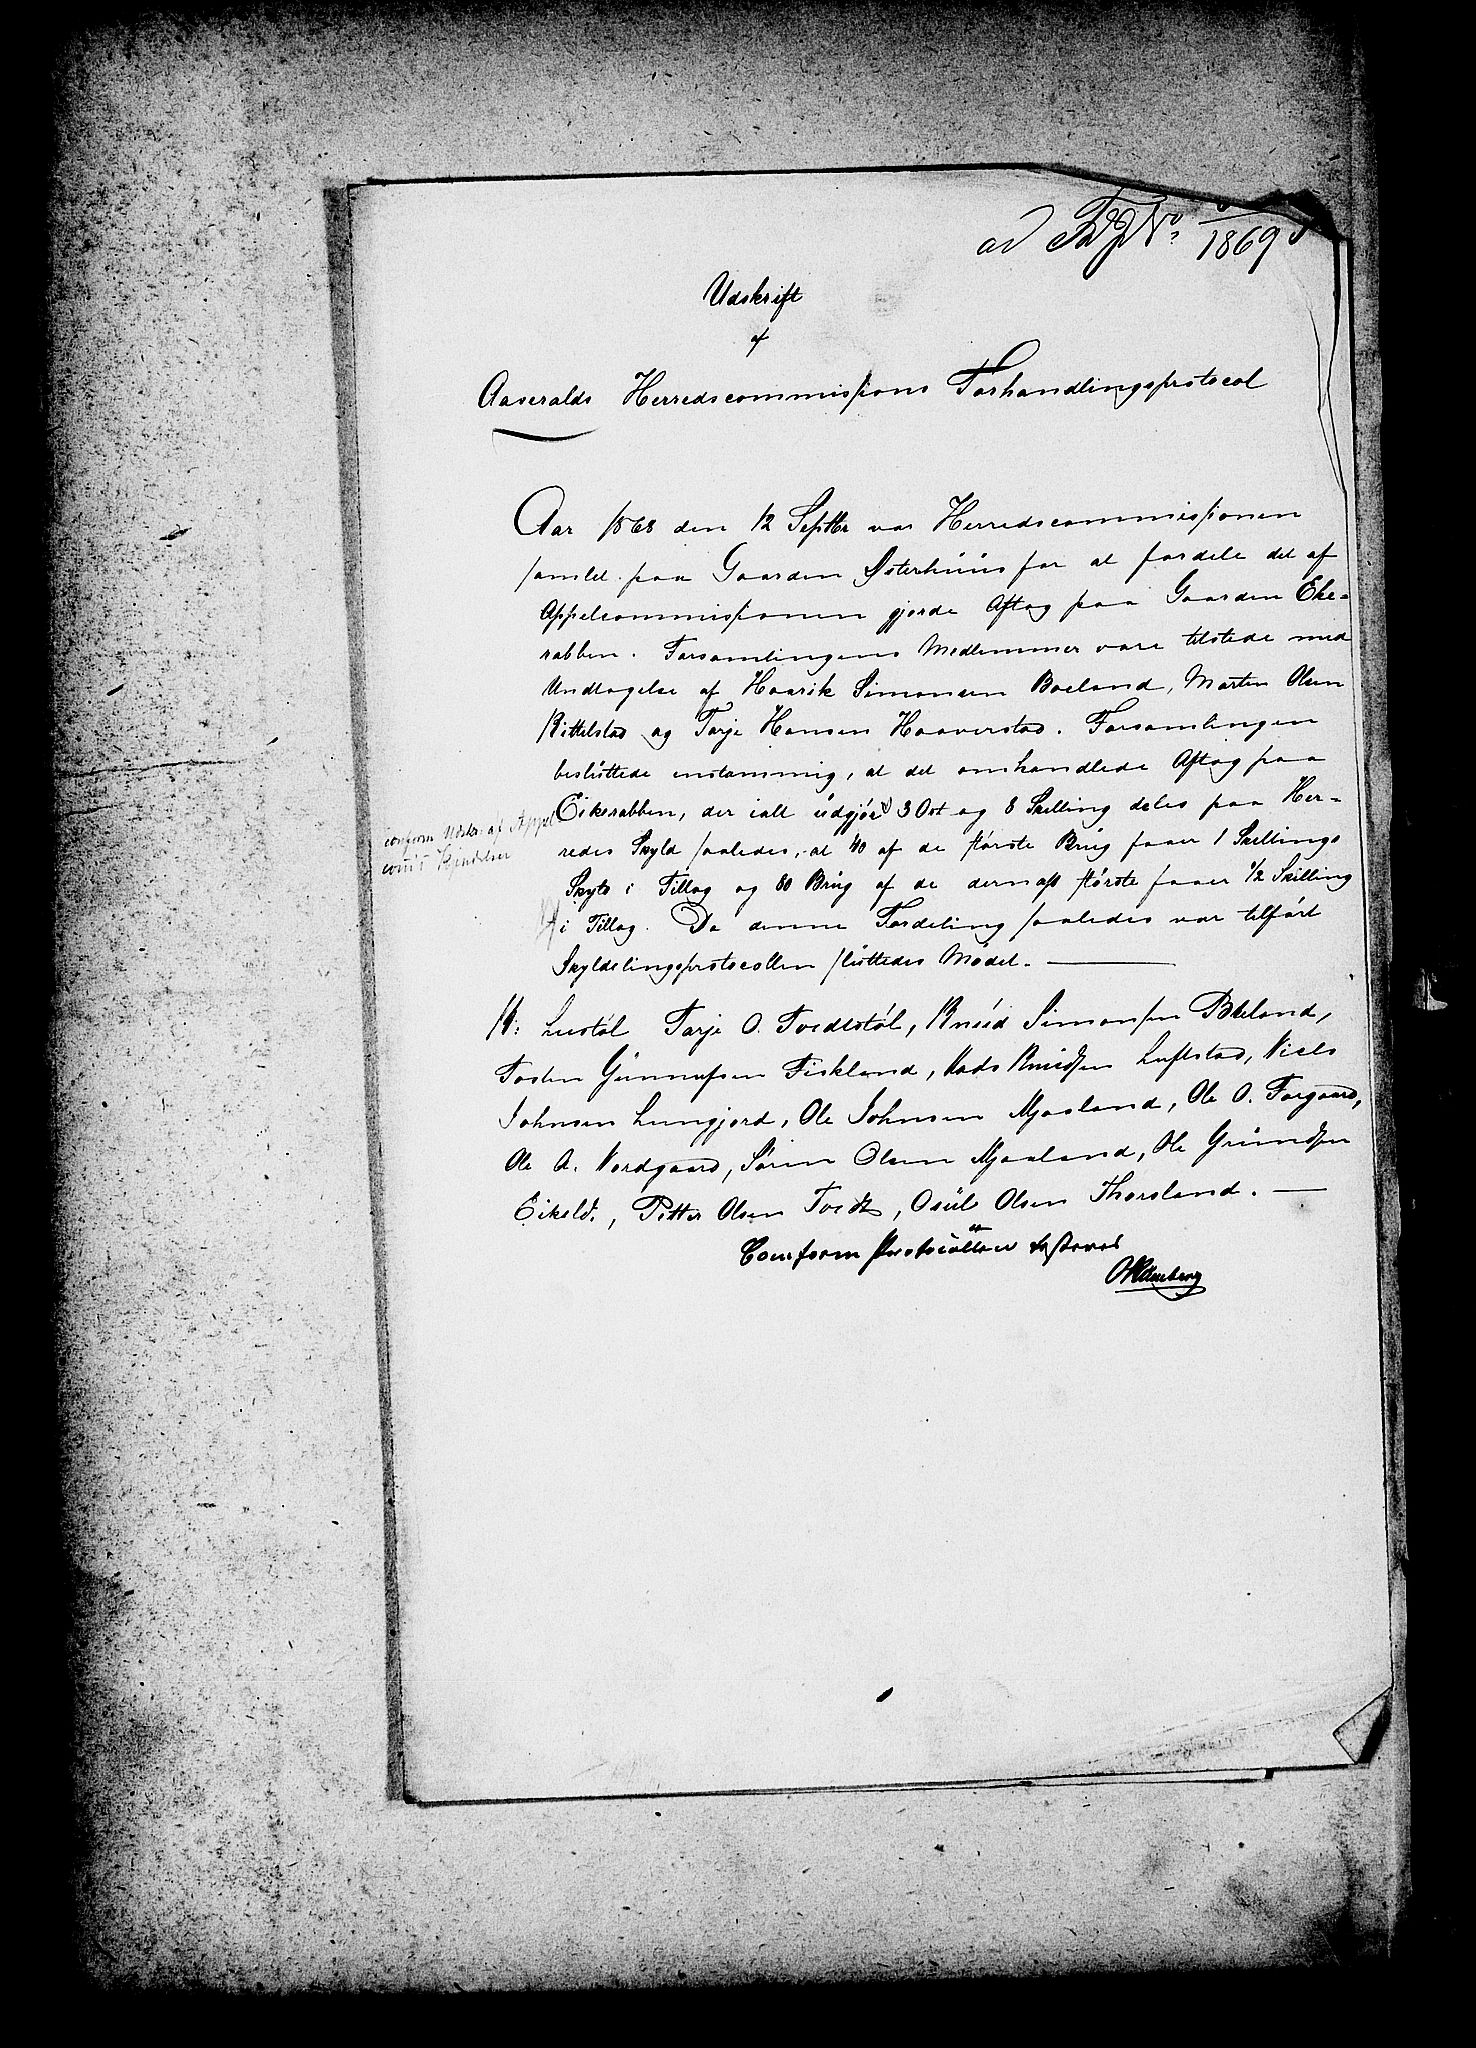 ad No 1869
Udskrift
af
Aaseralds Herredscommissions Forhandlingsprotocol
Aar 1868 den 12 Septbr var Herredscommissionen
samlet paa Gaarden Østerhuus for at fordele det af
Appelcommissionen gjorde Aftag paa Gaarden Eke-
rabben. Forsamlingens Medlemmer vare tilstede med
Undtagelse af Haavik Simonsen Boeland, Marten Olsen
Kittelstad og Tarje Hansen Haaverstad. Forsamlingen
besluttede enstemmig, at det omhandlede Aftag paa
Eikerabben, der ialt udgjør 3 Ort og 8 Skilling deles paa Her-
conform Udskr. af Appel
comts Kjendelser
redes Skyld saaledes, at 40 af de største Brug faaer 1 Skillings
Skyld i Tillag og 80 Brug af de dernæst største faaer 1/2 Skilling
i Tillag. Da denne Fordeling saaledes var tilført
Skyldelingsprotocollen sluttedes Mødet.
Liestøl Tarje O. Tvedtstøl, Knud Simonsen Bœland,
Tosten Gunnufsen Fiskland, Mads Knudsen Luftstad, Niels
Johnsen Lungjord, Ole Johnsen Mjaaland, Ole O. Torgaard,
Ole A. Nordgaard, Søren Olsen Mjaaland, Ole Grundsen
Eikeld., Petter Olsen Tvedt, Osul Olsen Thorsland.
Conform Protocollen testerer